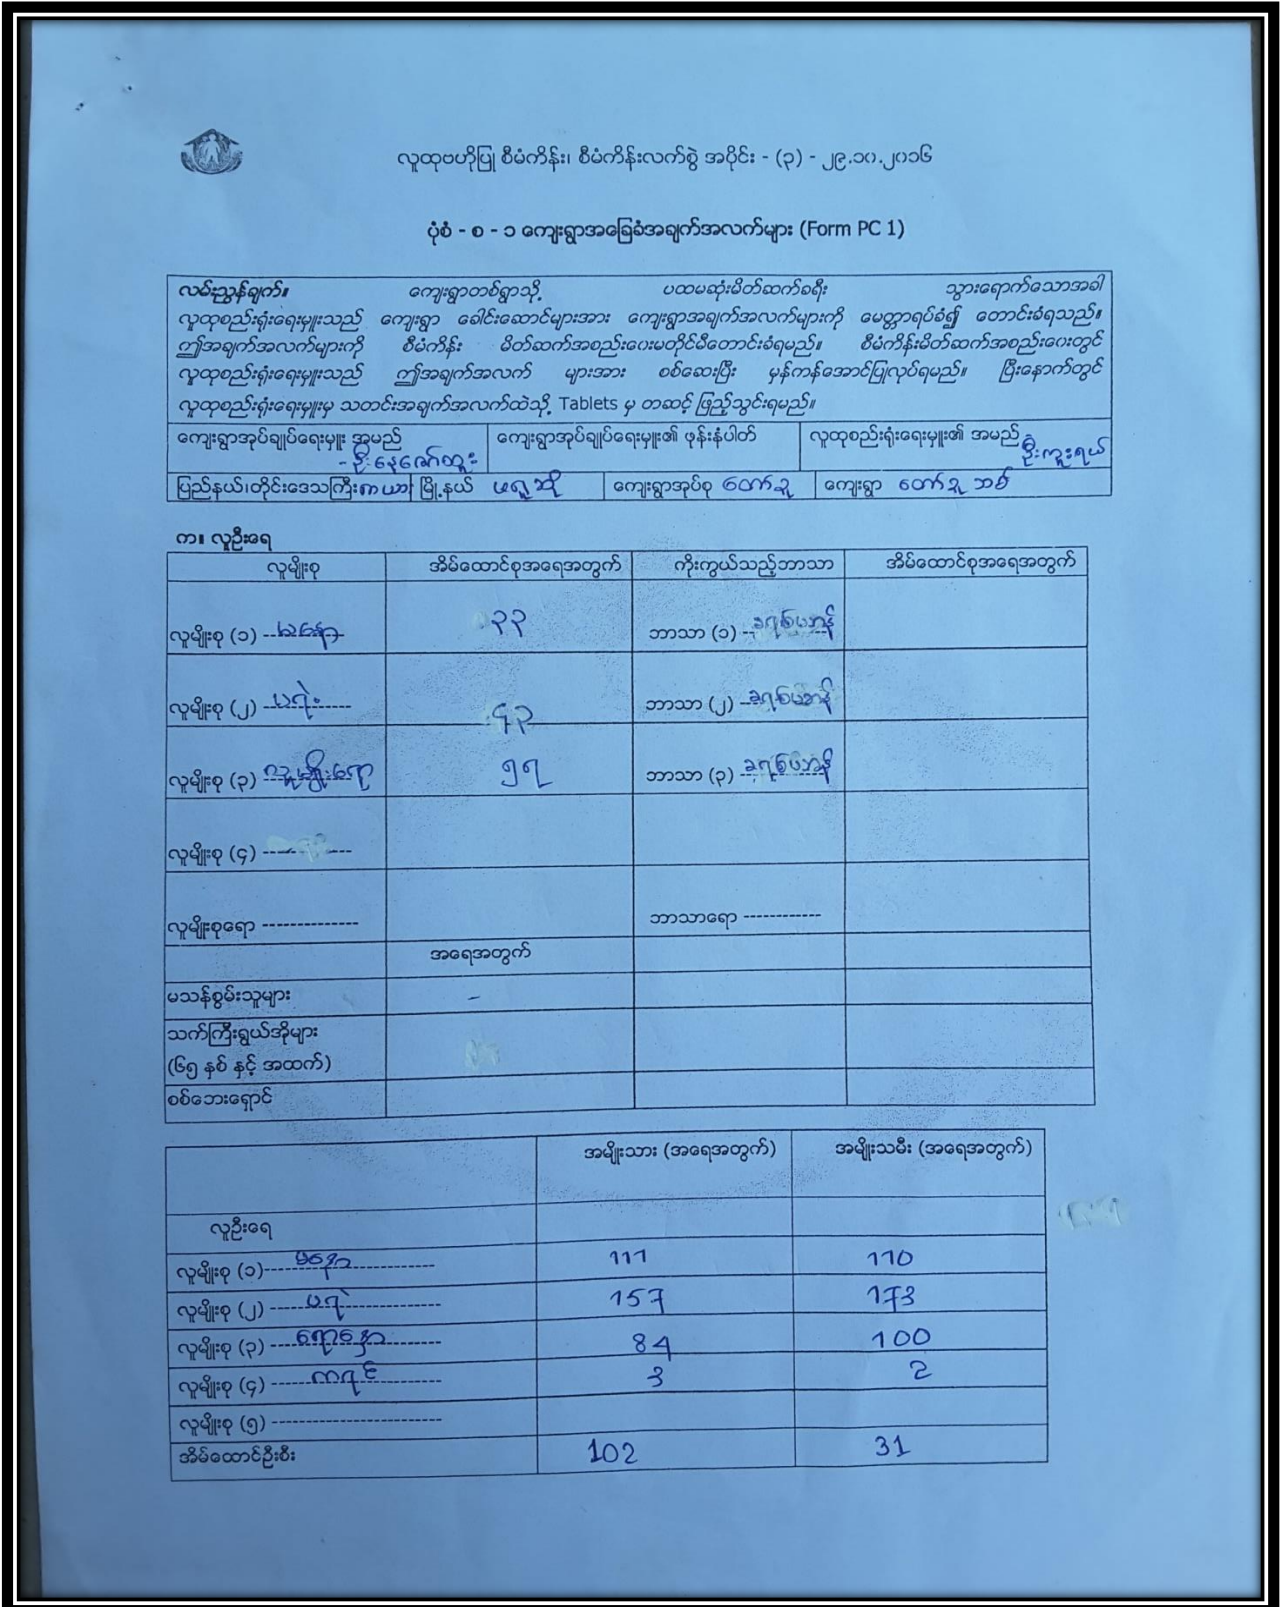 လူထုဗဟိုပြု စီမံကိန်း၊ စီမံကိန်းလက်စွဲ အပိုင်း - (၃) - ၂၉.၁၀.၂၀၁၆
ပုံစံ - စ - ၁ ကျေးရွာအခြေခံအချက်အလက်များ (Form PC 1)
လမ်းညွှန်ချက်။ ကျေးရွာတစ်ရွာသို့ ပထမဆုံးမိတ်ဆက်ခရီး သွားရောက်သောအခါ
လူထုစည်းရုံးရေးမှူးသည် ကျေးရွာ ခေါင်းဆောင်များအား ကျေးရွာအချက်အလက်များကို မေတ္တာရပ်ခံ၍ တောင်းခံရသည်။
ဤအချက်အလက်များကို စီမံကိန်း မိတ်ဆက်အစည်းဝေးမတိုင်မီတောင်းခံရမည်။ စီမံကိန်းမိတ်ဆက်အစည်းဝေးတွင်
လူထုစည်းရုံးရေးမှူးသည် ဤအချက်အလက် များအား စစ်ဆေးပြီး မှန်ကန်အောင်ပြုလုပ်ရမည်။ ပြီးနောက်တွင်
လူထုစည်းရုံးရေးမှူးမှ သတင်းအချက်အလက်ထဲသို့ Tablets မှ တဆင့် ဖြည့်သွင်းရမည်။
ကျေးရွာအုပ်ချုပ်ရေးမှူး အမည် ကျေးရွာအုပ်ချုပ်ရေးမှူး၏ ဖုန်းနံပါတ် လူထုစည်းရုံးရေးမှူး၏ အမည်
- ဦးနေဇော်ထူး ဦးကူးရယ်
ပြည်နယ်၊တိုင်းဒေသကြီး ကယား မြို့နယ် ဖရူဆို ကျေးရွာအုပ်စု တော်ခူ ကျေးရွာ တော်ခူ ဘစ်
က။ လူဦးရေ
လူမျိုးစု အိမ်ထောင်စုအရေအတွက် ကိုးကွယ်သည့်ဘာသာ အိမ်ထောင်စုအရေအတွက်
လူမျိုးစု (၁) မနော ၃၃ ဘာသာ (၁) ခရစ်ယာန်
လူမျိုးစု (၂) ပရဲ ၄၃ ဘာသာ (၂) ခရစ်ယာန်
လူမျိုးစု (၃) လူမျိုးရော ၅၇ ဘာသာ (၃) ခရစ်ယာန်
လူမျိုးစု (၄) --------------
လူမျိုးစုရော -------------- ဘာသာရော ------------
အရေအတွက်
မသန်စွမ်းသူများ -
သက်ကြီးရွယ်အိုများ
(၆၅ နှစ် နှင့် အထက်)
စစ်ဘေးရှောင်
အမျိုးသား (အရေအတွက်) အမျိုးသမီး (အရေအတွက်)
လူဦးရေ
လူမျိုးစု (၁) မနော 111 110
လူမျိုးစု (၂) ပရဲ 157 173
လူမျိုးစု (၃) ရောနှော 84 100
လူမျိုးစု (၄) ကရင် 3 2
လူမျိုးစု (၅) -------------------------
အိမ်ထောင်ဦးစီး 102 31